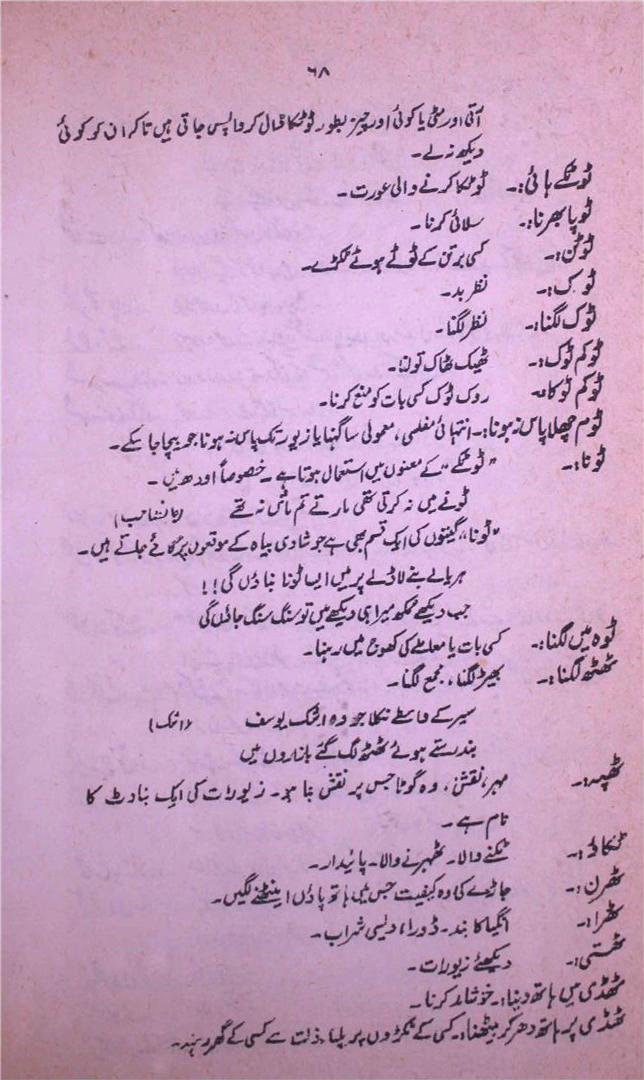 ۶۸
آتی اور مٹی یا کوئی اور چیز بطور ٹوٹکا ڈال کر واپس جاتی ہیں تاکہ ان کو کوئی
دیکھ نہ لے۔
ٹوٹکے ہائی:۔ ٹوٹکا کرنے والی عورت۔
ٹوپا بھرنا:۔ سلائی کرنا۔
ٹوٹن:۔ کسی برتن کے ٹوٹے ہوئے ٹکڑے۔
ٹوک:۔ نظر بد۔
ٹوک لگنا:۔ نظر لگنا۔
ٹوکم ٹوک:۔ ٹھیک ٹھاک تولنا۔
ٹوکم ٹوکا:۔ روک ٹوک کسی بات کو منع کرنا۔
ٹوم چھلا پاس نہ ہونا:۔ انتہائی مفلسی، معمولی سا گہنا یا زیور تک پاس نہ ہونا جو بیچا جا سکے۔
ٹونا:۔ "ٹوٹکے" کے معنوں میں استعمال ہوتا ہے۔ خصوصاً اودھ میں۔
ٹونے میں نہ کرتی تھی مارتے تم ماش نہ تھے (جانصاحب)
"ٹونا" گیتوں کی ایک قسم بھی ہے جو شادی بیاہ کے موقعوں پر گائے جاتے ہیں۔
ہریالے بنے لاڈلے پر میں ایسا ٹونا بناؤں گی!!
جب دیکھے مکھ میرا ہی دیکھے میں تو سنگ سنگ جاؤں گی
ٹوہ میں لگنا:۔ کسی بات یا معاملے کی کھوج میں رہنا۔
ٹھٹھ لگنا:۔ بھیڑ لگنا، مجمع لگنا۔
سیر کے واسطے نکلا جو وہ رشک یوسف (رشک)
بند رستے ہوئے ٹھٹھ لگ گئے بازاروں میں
ٹھپہ:۔ مہر، نقش، وہ گوٹا جس پر نقش بنا ہو۔ زیورات کی ایک بناوٹ کا
نام ہے۔
ٹکاؤ:۔ ٹکنے والا۔ ٹھہرنے والا۔ پائیدار۔
ٹھرن:۔ جاڑے کی وہ کیفیت جس میں ہاتھ پاؤں اینٹھنے لگیں۔
ٹھرا:۔ انگیا کا بند۔ ڈورا، دیسی شراب۔
دیکھئے زیورات۔
ٹھڈی میں ہاتھ دینا:۔ خوشامد کرنا۔
ٹھڈی پر ہاتھ دھر کر بیٹھنا:۔ کسی کے ٹکڑوں پر پلنا، ذلت سے کسی کے گھر رہنا۔